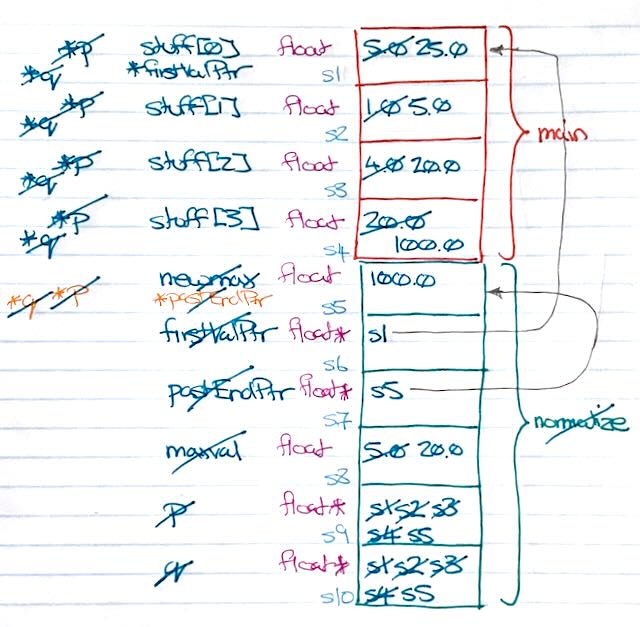 *p stuff[0] float 5.0 25.0
*q *firstValPtr s1
*p stuff[1] float 1.0 5.0
*q s2 main
*p stuff[2] float 4.0 20.0
*q s3
*p stuff[3] float 20.0
*q s4 1000.0
newmax float 1000.0
*q *p *pastEndPtr s5
firstValPtr float* s1
s6
pastEndPtr float* s5
s7 normalize
maxval float 5.0 20.0
s8
p float* s1 s2 s3
s9 s4 s5
q float* s1 s2 s3
s10 s4 s5